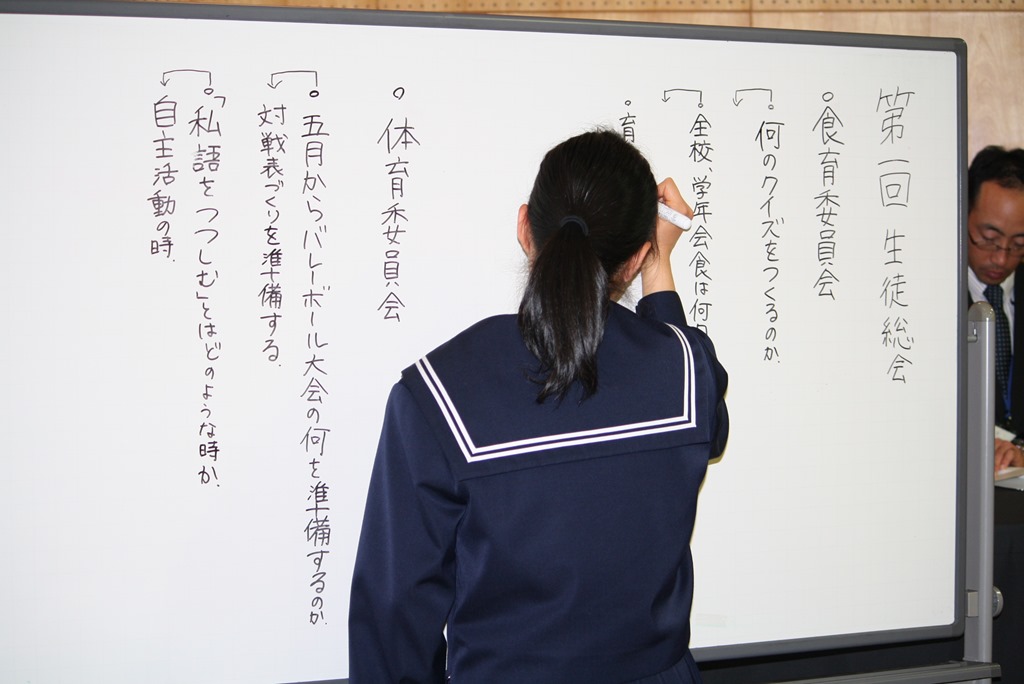 第一回 生徒総会
○食育委員会
○何のクイズをつくるのか.
○全校、学年会食は何
○育
○体育委員会
○五月からバレーボール大会の何を準備するのか.
対戦表づくりを準備する.
○「私語をつつしむ」とはどのような時か.
自主活動の時.